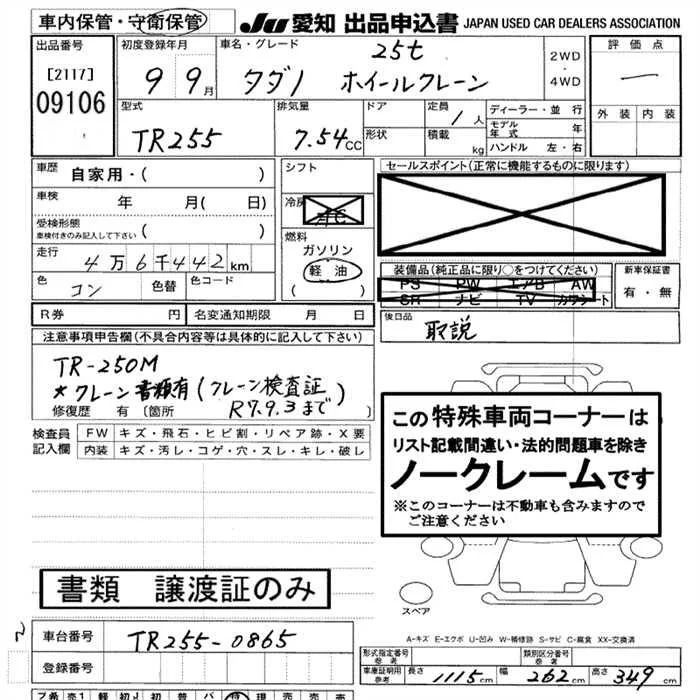 車内保管・守衛保管
JU 愛知 出品申込書 JAPAN USED CAR DEALERS ASSOCIATION
出品番号
[2117]
09106
初度登録年月
9 9月
車名・グレード
25t
タダノ ホイールクレーン
2WD
・
4WD
評価点
一
外装 内装
型式
TR255
排気量
7.54cc
ドア
形状
定員 1人
積載 kg
ディーラー・並行
モデル年式 年
ハンドル 左・右
車歴
自家用・( )
車検
年 月( 日)
受検形態
車検付きのみ記入して下さい ( )
走行
4万6千442km
色 コン 色替 色コード
シフト
冷房 AC
燃料
ガソリン
軽油
( )
セールスポイント(正常に機能するものに限ります)
装備品(純正品に限り○をつけてください)
PS PW エアB AW
SR ナビ TV カワシート
新車保証書
有・無
後日品
取説
R券 円 名変通知期限 月 日
注意事項申告欄(不具合内容等は具体的に記入して下さい)
TR-250M
*クレーン書類有(クレーン検査証
R7.9.3まで)
修復歴 有〔箇所
検査員
記入欄
FW キズ・飛石・ヒビ割・リペア跡・X要
内装 キズ・汚レ・コゲ・穴・スレ・キレ・破レ
この特殊車両コーナーは
リスト記載間違い・法的問題車を除き
ノークレームです
※このコーナーは不動車も含みますので
ご注意ください
書類 譲渡証のみ
スペア
A-キズ E-エクボ U-凹み W-補修跡 S-サビ C-腐食 XX-交換済
車台番号
TR255-0865
登録番号
形式指定番号
参考
類別区分番号
参考
車庫証明用
参考
長さ 1115cm 幅 262cm 高さ 349cm